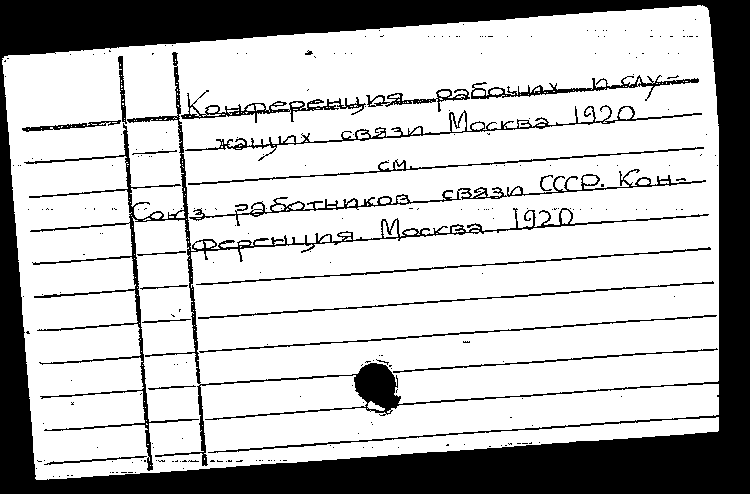 Конференция рабочих и слу-
жащих связи. Москва. 1920
см.
Союз работников связи СССР. Кон-
ференция. Москва. 1920